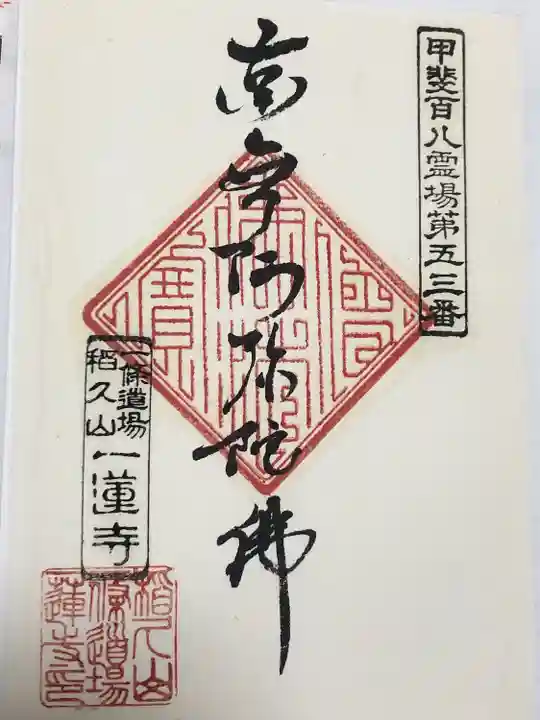 甲斐百八霊場第五三番
南無阿弥陀佛
一條道場
稻久山一蓮寺
稻久山
一條道場
一蓮寺印